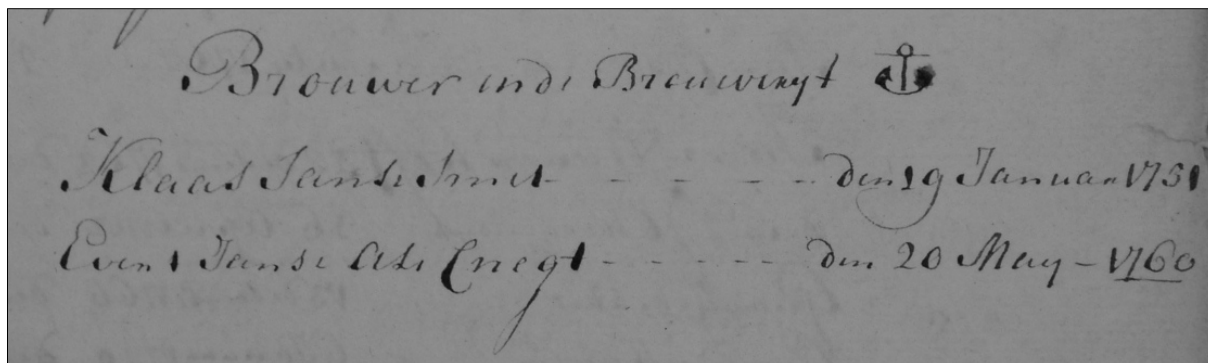 Brouwer inde Brouweryt ⚓
Klaas Janse Smit - - - - - - den 19 Januari 1751
Evert Janse Als Cnegt - - - - - den 20 May - 1760